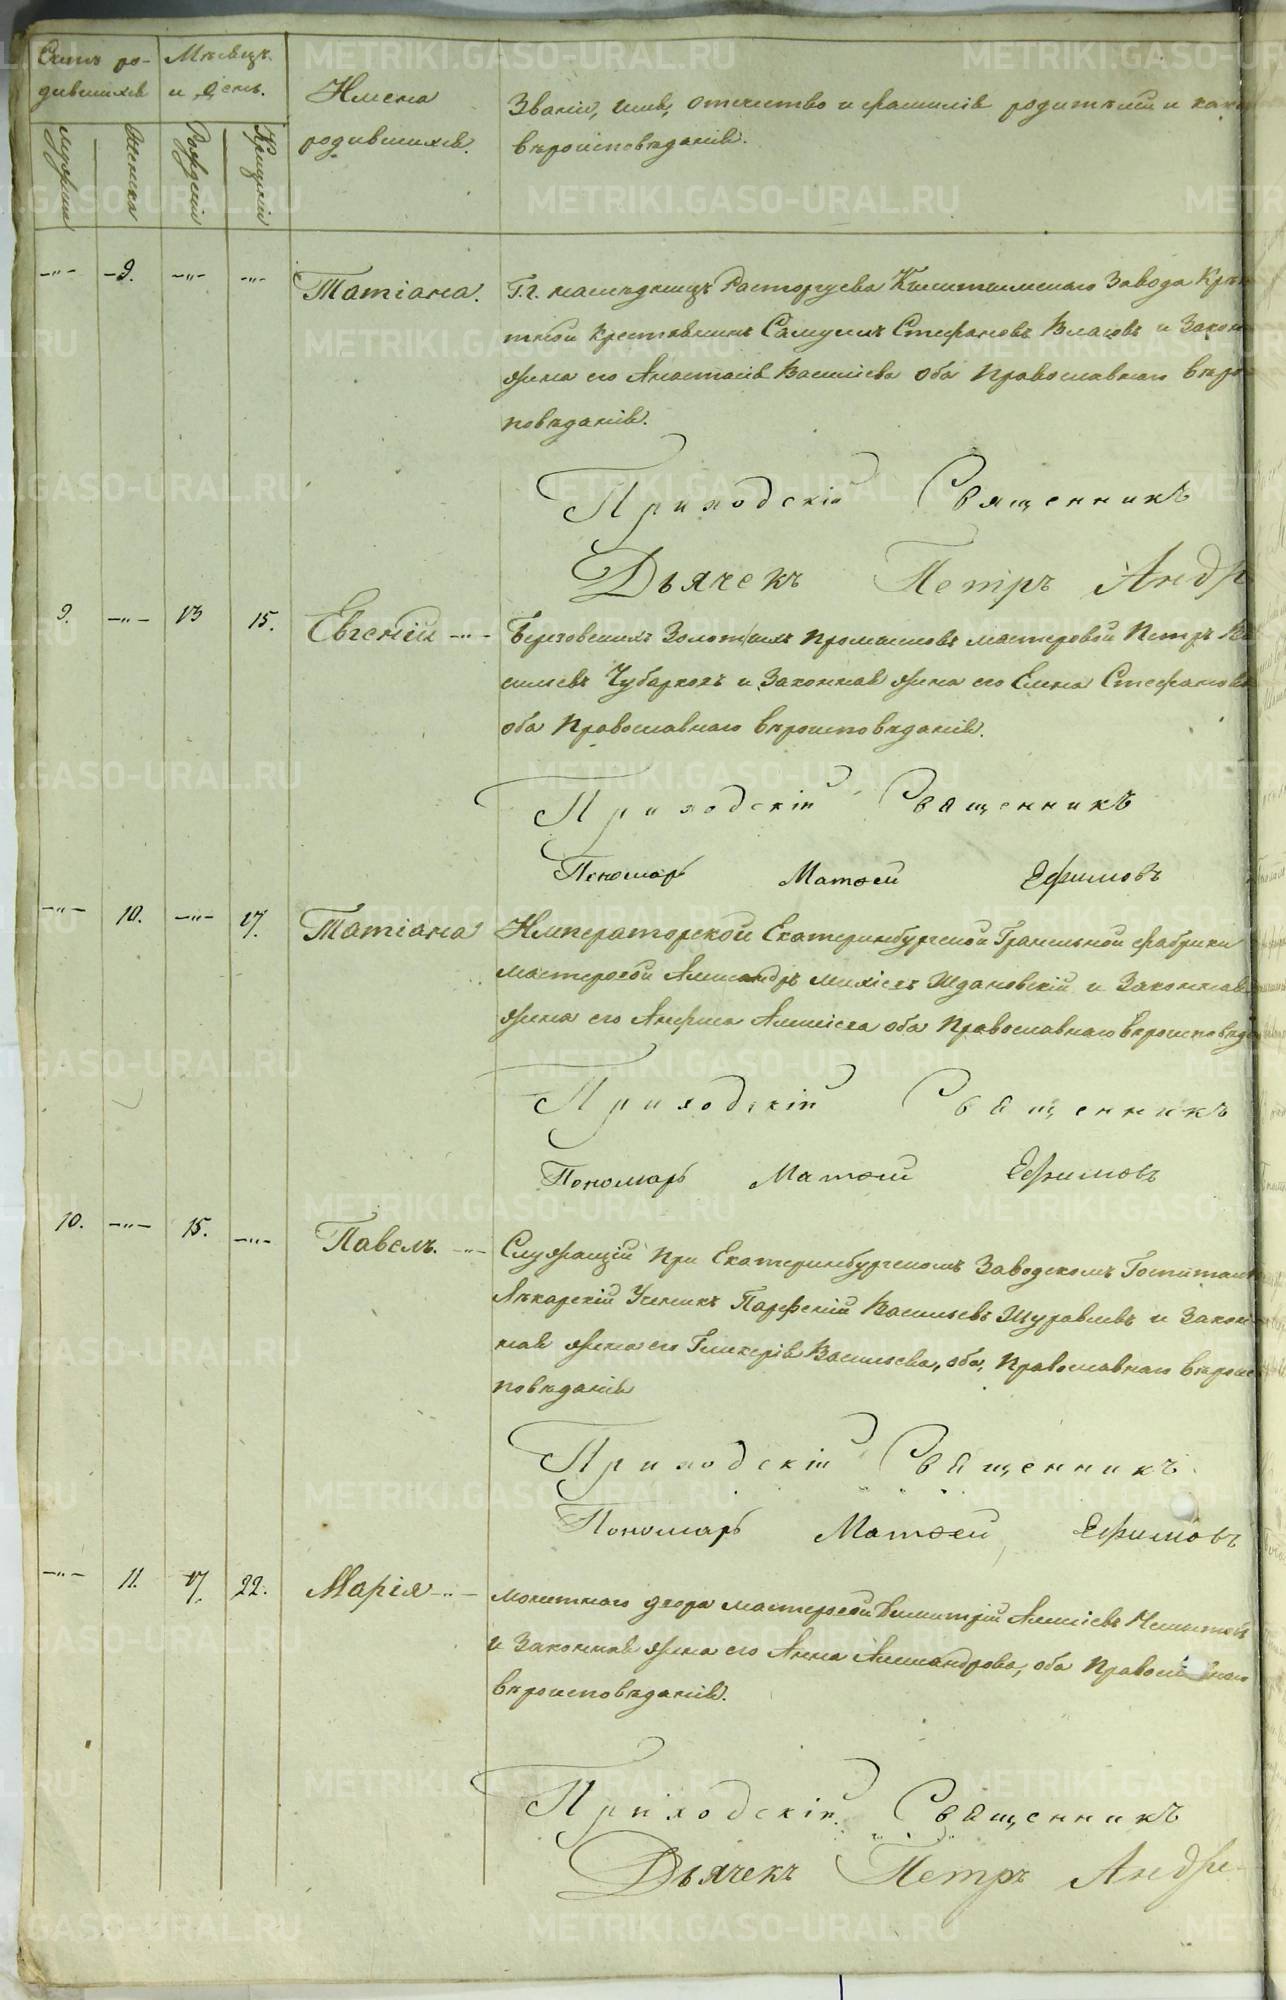 Счетъ ро- Мѣсяцъ
дившихся и день.
Имена
родившихся.
Званіе, имя, отечество и фамилія родителей и
вѣроисповѣданія.
мужеска
женска
Рожденія
Крещенія
-"- -9. -"- -"- Татіана. Г. г. наслѣдницъ Расторгуева Кыштымскаго Завода
крестьянинъ Самуилъ Стефановъ Власовъ и
жена его Анастасія Васильева оба Православнаго
повѣданія.
Приходскій Священникъ
Дьячекъ Петръ
9. -"- 13 15. Евгеній -"- Березовскихъ Золотыхъ Промысловъ мастеровой Петръ
сильевъ Чубарковъ и Законная жена его Елена
оба Православнаго вѣроисповѣданія.
Приходскій Священникъ
Пономарь Матѳей Ефимовъ
-"- 10. -"- 17. Татіана Императорской Екатеринбургской Гранильной фабрики
мастеровой Александръ Ждановскій и Законная
жена его Анфиса Алексѣева оба Православнаго
Приходскій Священникъ
Пономарь Матѳей Ефимовъ
10. -"- 15. -"- Павелъ. -"- Служащій при Екатеринбургскомъ Заводскомъ
Лѣкарскій Ученикъ Парфеній Васильевъ Журавлевъ и
ная жена его Гликерія Васильева, оба, Православнаго
повѣданія
Приходскій Священникъ
Пономарь Матѳей Ефимовъ
-"- 11. 17. 22. Марія -"- Монетнаго двора мастеровой Димитрій Алексѣевъ
и Законная жена его Анна Александрова, оба
вѣроисповѣданія.
Приходскій Священникъ
Дьячекъ Петръ
METRIKI.GASO-URAL.RU